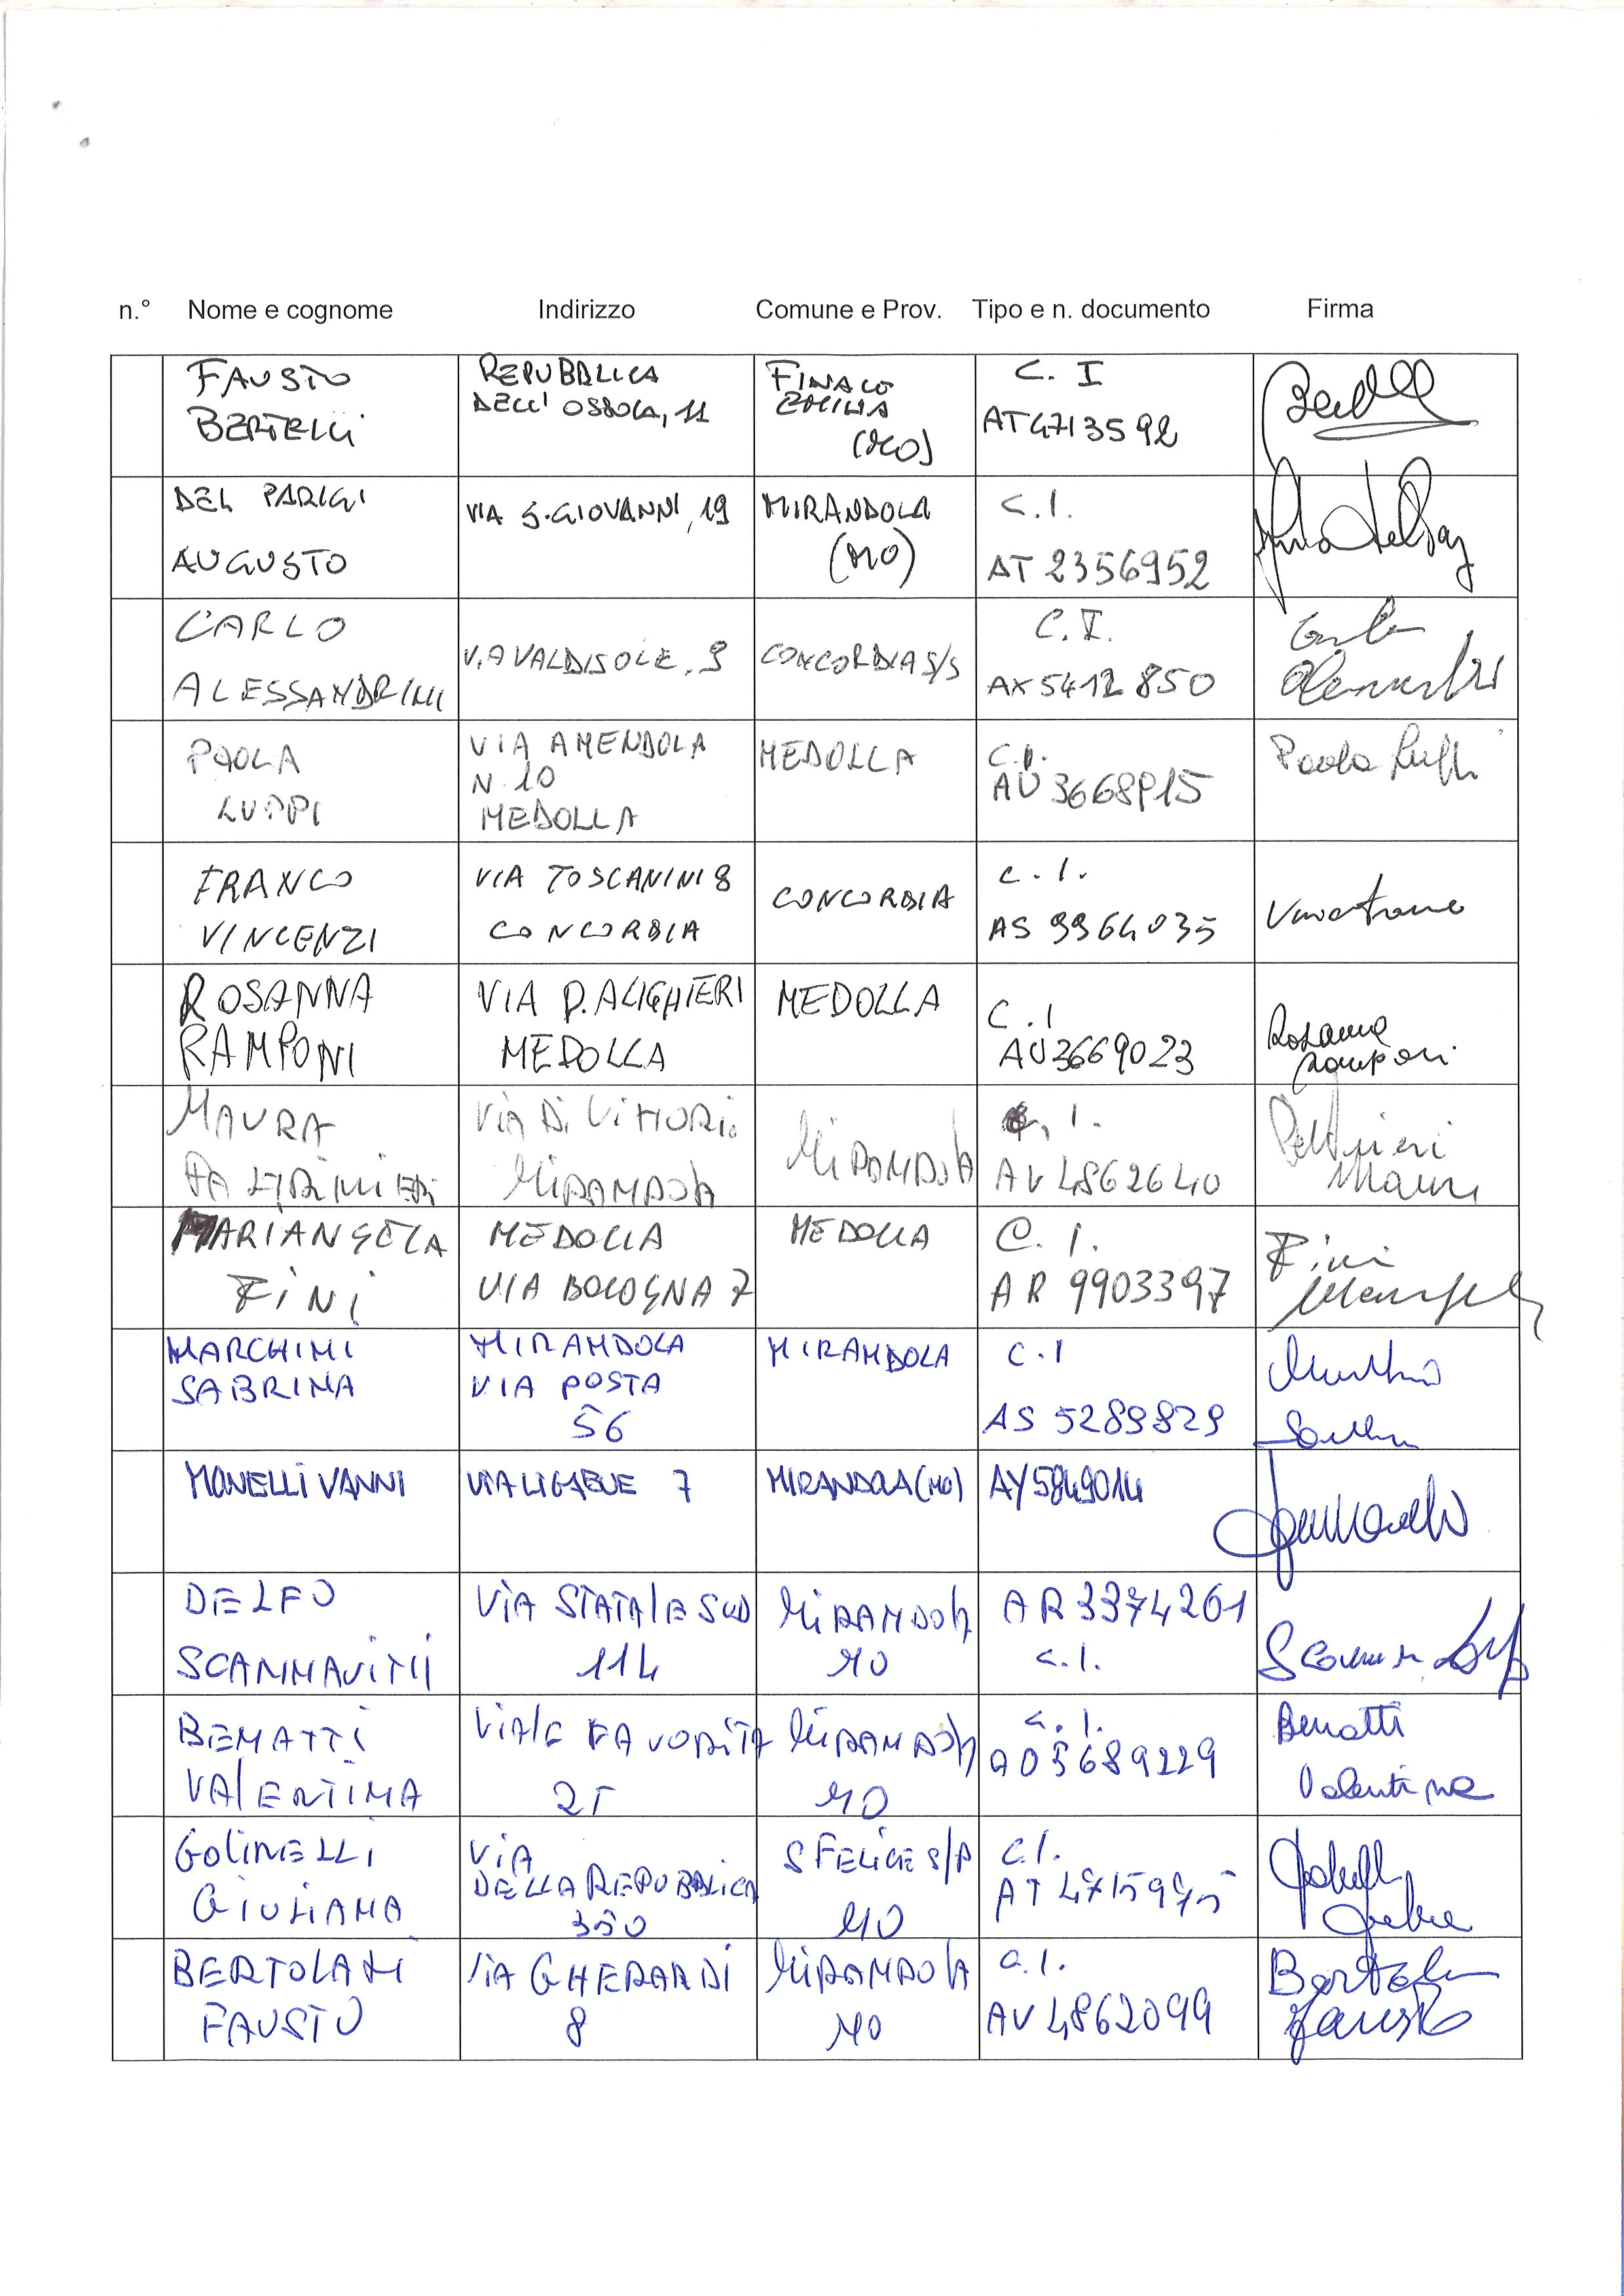 n.° Nome e cognome Indirizzo Comune e Prov. Tipo e n. documento Firma
FAUSTO BERTELLI REPUBBLICA DELL'OSSOLA, 11 FINALE EMILIA (MO) C. I AT4713592
DEL PARIGI AUGUSTO VIA S.GIOVANNI, 19 MIRANDOLA (MO) C.I. AT 2356952
CARLO ALESSANDRINI VIA VALDISOLE, 9 CONCORDIA S/S C.I. AX5412850 Carlo
PAOLA LUPPI VIA AMENDOLA N.10 MEDOLLA MEDOLLA C.I. AU 3668915 Paola Luppi
FRANCO VINCENZI VIA TOSCANINI 8 CONCORDIA CONCORDIA C.I. AS 9964035
ROSANNA RAMPONI VIA D.ALIGHIERI MEDOLLA MEDOLLA C.I AU3669023 Rosanna Ramponi
MAURA PALTRINIERI VIA DI VITTORIO MIRANDOLA MIRANDOLA C.I. AV 4862640 Paltrinieri Maura
MARIANGELA FINI MEDOLLA VIA BOLOGNA 7 MEDOLLA C.I. AR 9903397 Fini
MARCHINI SABRINA MIRANDOLA VIA POSTA 56 MIRANDOLA C.I AS 5289829
MONELLI VANNI VIA LIGABUE 7 MIRANDOLA (MO) AY5849014
DELFO SCANNAVINI VIA STATALE SUD 114 MIRANDOLA MO AR 3374261 C.I.
BENATTI VALENTINA VIALE FAVORITA 25 MIRANDOLA MO C.I. Benatti Valentina
GOLINELLI GIULIANA VIA DELLA REPUBBLICA 350 S FELICE S/P MO C.I. AT 4715975
BERTOLANI FAUSTO VIA GHERARDI 8 MIRANDOLA MO C.I. AV 4862099 Fausto